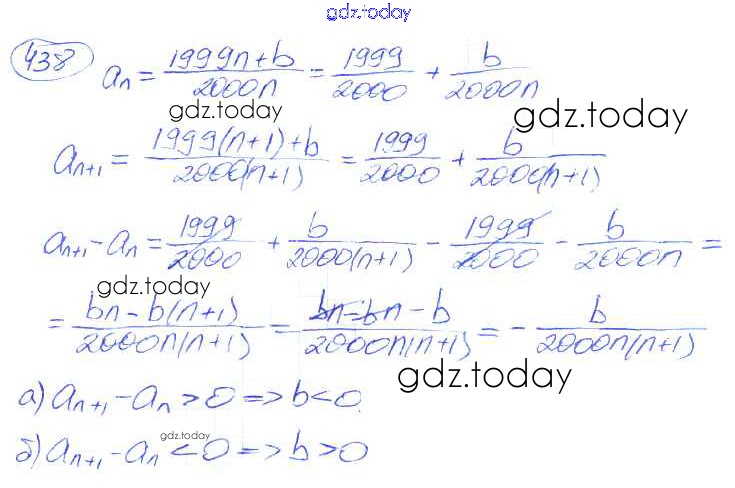 gdz.today
438 aₙ = (1999n+b)/(2000n) = 1999/2000 + b/(2000n)
gdz.today gdz.today
aₙ₊₁ = (1999(n+1)+b)/(2000(n+1)) = 1999/2000 + b/(2000(n+1))
aₙ₊₁ - aₙ = 1999/2000 + b/(2000(n+1)) - 1999/2000 - b/(2000n) =
gdz.today
= (bn - b(n+1))/(2000n(n+1)) = (bn - bn - b)/(2000n(n+1)) = - b/(2000n(n+1))
gdz.today
а) aₙ₊₁ - aₙ > 0 => b < 0
gdz.today
б) aₙ₊₁ - aₙ < 0 => b > 0